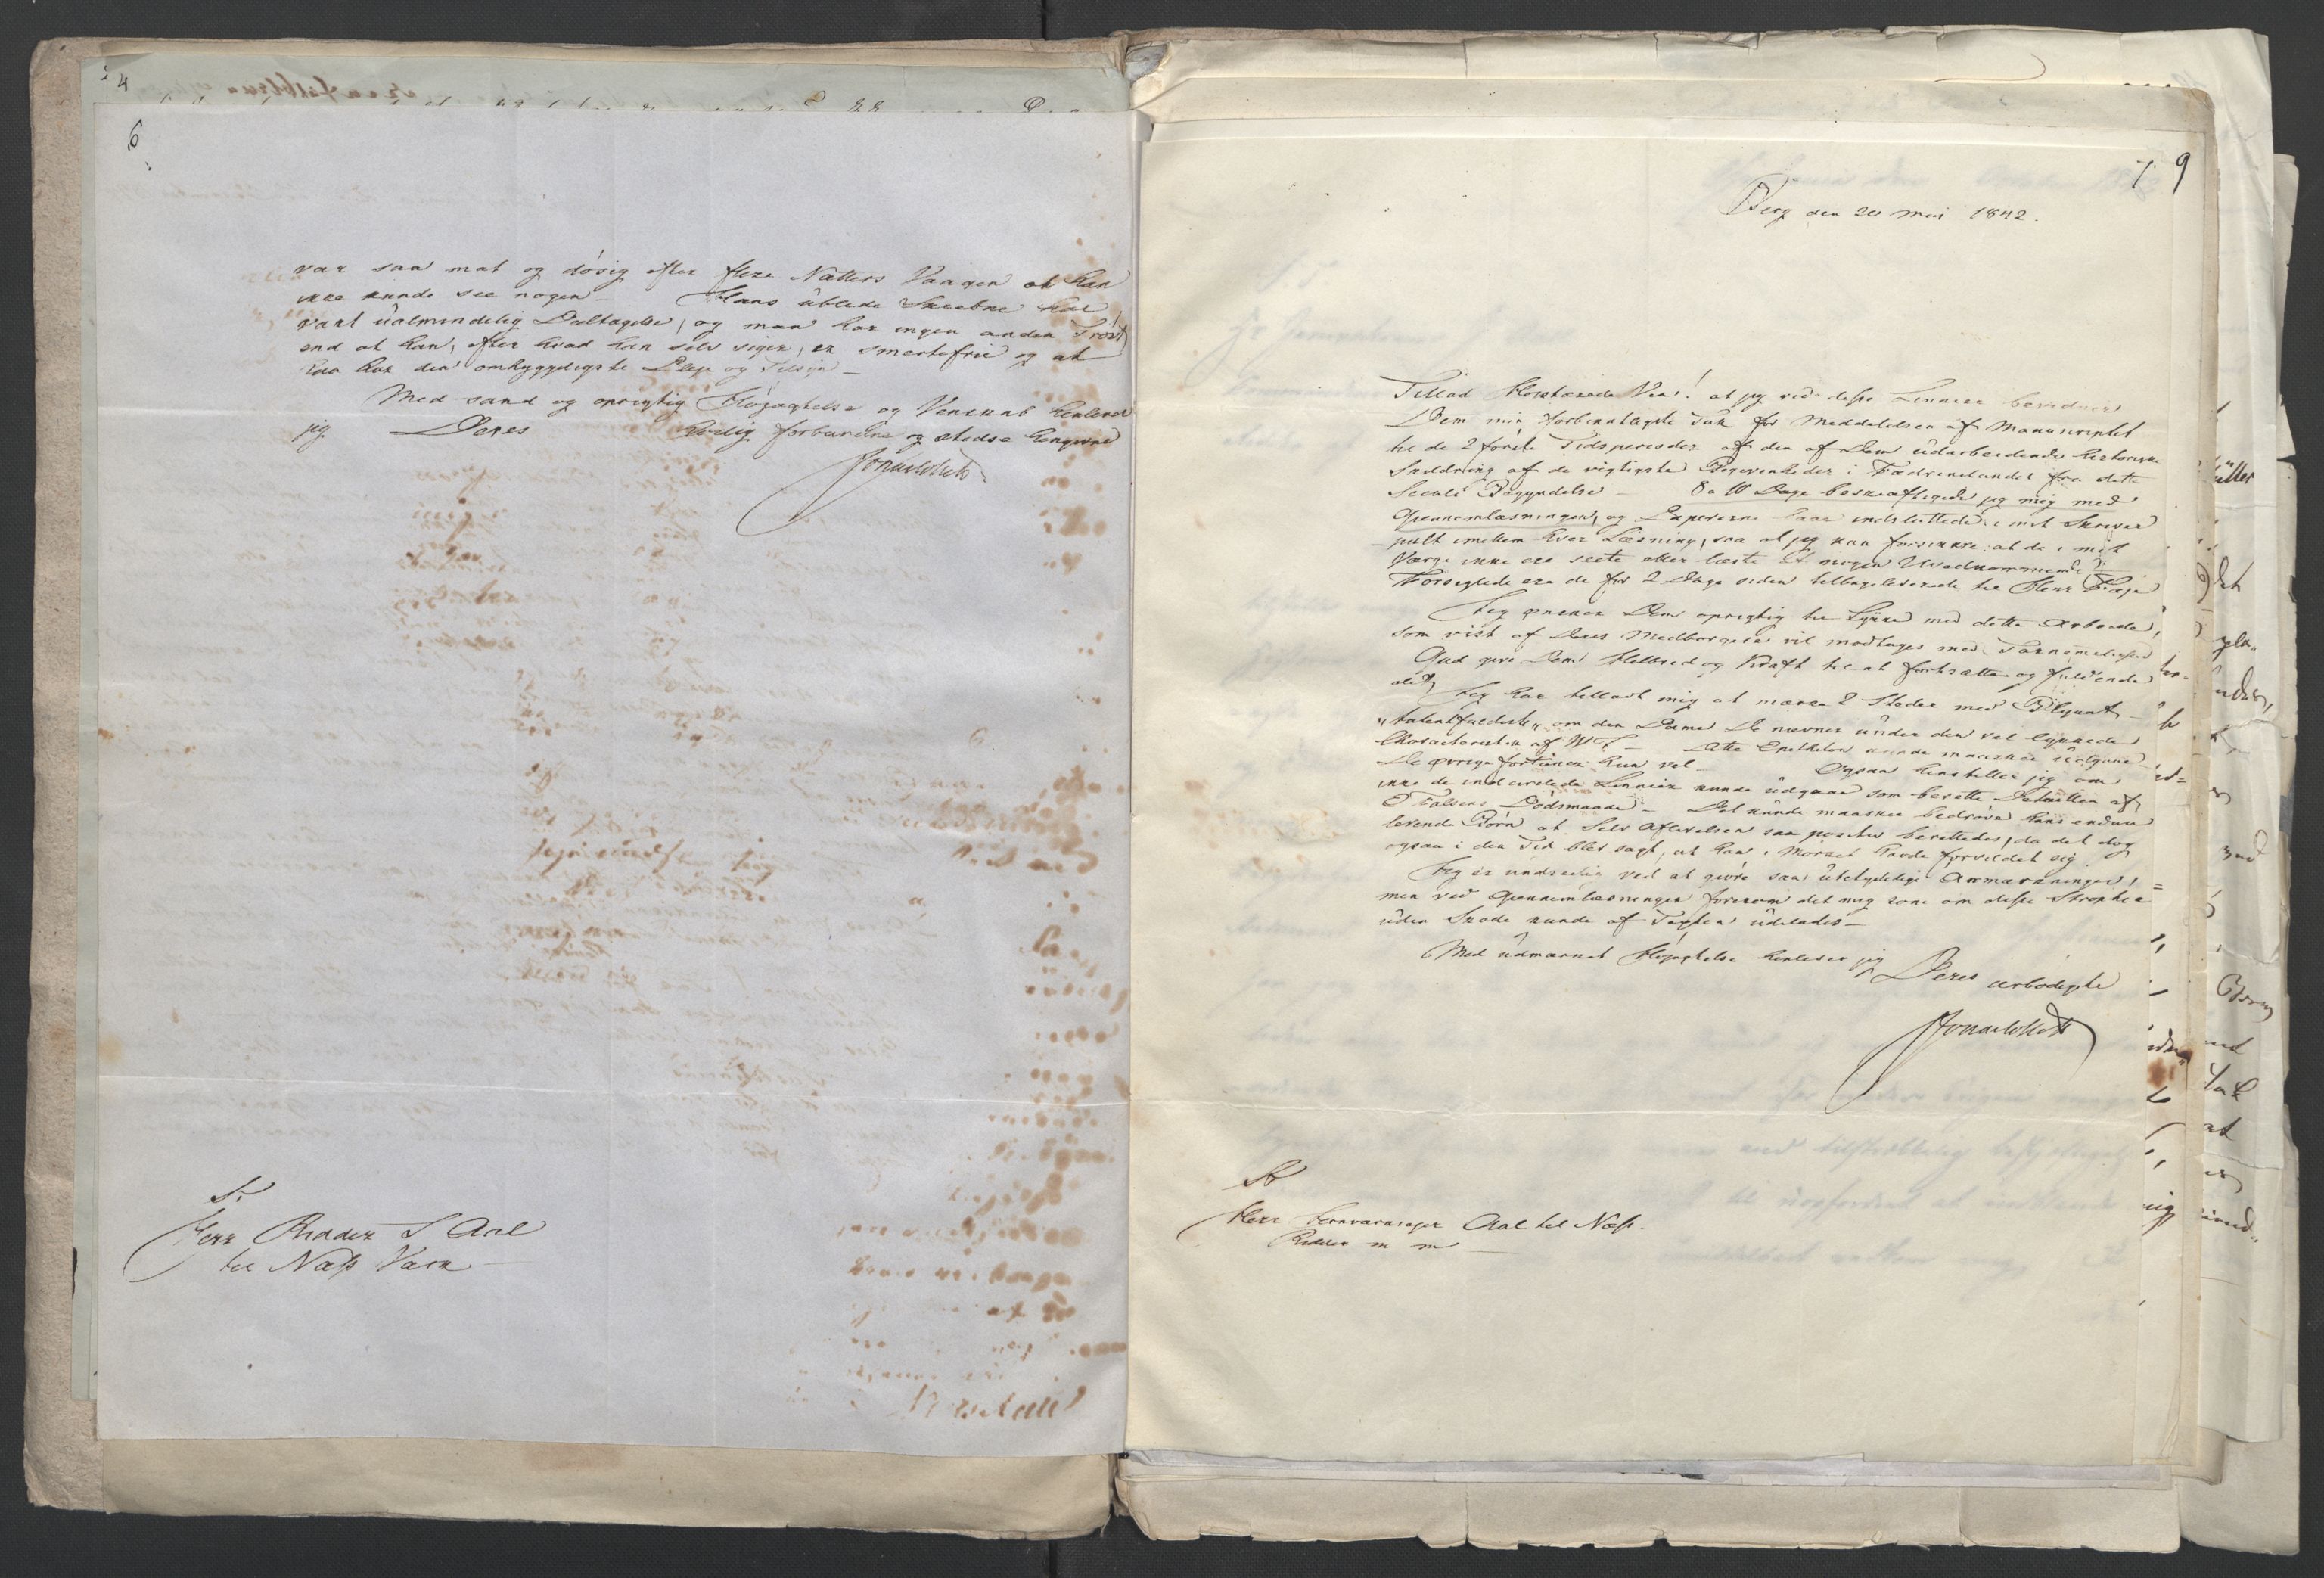 4
6
var saa mat og dösig efter flere Nætters Vaagen at han
ikke kunde see nogen – Hans üblide Skiæbne har
vakt üalmindelig Deeltagelse, og man har ingen anden Tröst
end at han, efter hvad han selv siger, er smertefrie og at
han har den omhyggeligste Pleje og Tilsyn –
Med sand og oprigtig Höjagtelse og Venskab henlever
jeg Deres hörlig forbundne og stedse hengivne
Til
Herr Ridder J Aal
til Næss Værk –
7 9
Berg den 20 Mai 1842.
Tillad Höistærede Ven! at jeg ved disse Linnier bevidner
Dem min forbindtligste Tak for Meddelelsen af Manuscriptet
til de 2 förste Tidsperioder af den af Dem üdarbeidende historiske
Skildring af de vigtigste Begivenheder i Fædrenelandet fra dette
Seculi Begyndelse – 8 a 10 Dage beskjæftigede jeg mig med
Gjennemlæsningen, og Papirerne laae indsluttede i mit Skriver
pult imellem hver Læsning, saa at jeg kan forsikkre at de i mit
Værge ikke ere seete eller læste af nogen Uvedkommende
Forseglede ere de for 2 Dage siden tilbageleverede til Herr
Jeg önsker Dem oprigtig til Lykke med dette Arbeide,
som vist af Deres Medborgere vil modtages med Taknemelighed
Gud give Dem Helbred og Kraft til at fortsætte og fuldende
det
Jeg har tilladt mig at mærke 2 Steder med Blyant –
"talentfuldeste" om den Dame De nævner ünder den vel lykkede
Charakteristik af WF – Dette Epitheton kunde maaskee üdgaae –
De övrige fortiener hun vel – Ogsaa henstiller jeg om
ikke de indcirclede Linnier kunde üdgaae som berette Detaillen af
E Falsens Dödsmaade – Det künde maaskee bedröve hans endnu
levende Börn at Selv Aflivelsen saa positiv berettedes, da det dog
ogsaa i den Tid blev sagt, at han i Mörket havde forvildet sig.
Jeg er undseelig ved at giöre saa übetydelige Anmærkninger,
men ved Gjennemlæsningen forekom det mig som om disse Stropher
üden Skade kunde af Texten üdelades –
Med üdmærket Höjagtelse henlever jeg
Deres ærbödigste
Til
Herr Jernværkseger Aal til Næss.
Ridder m m –